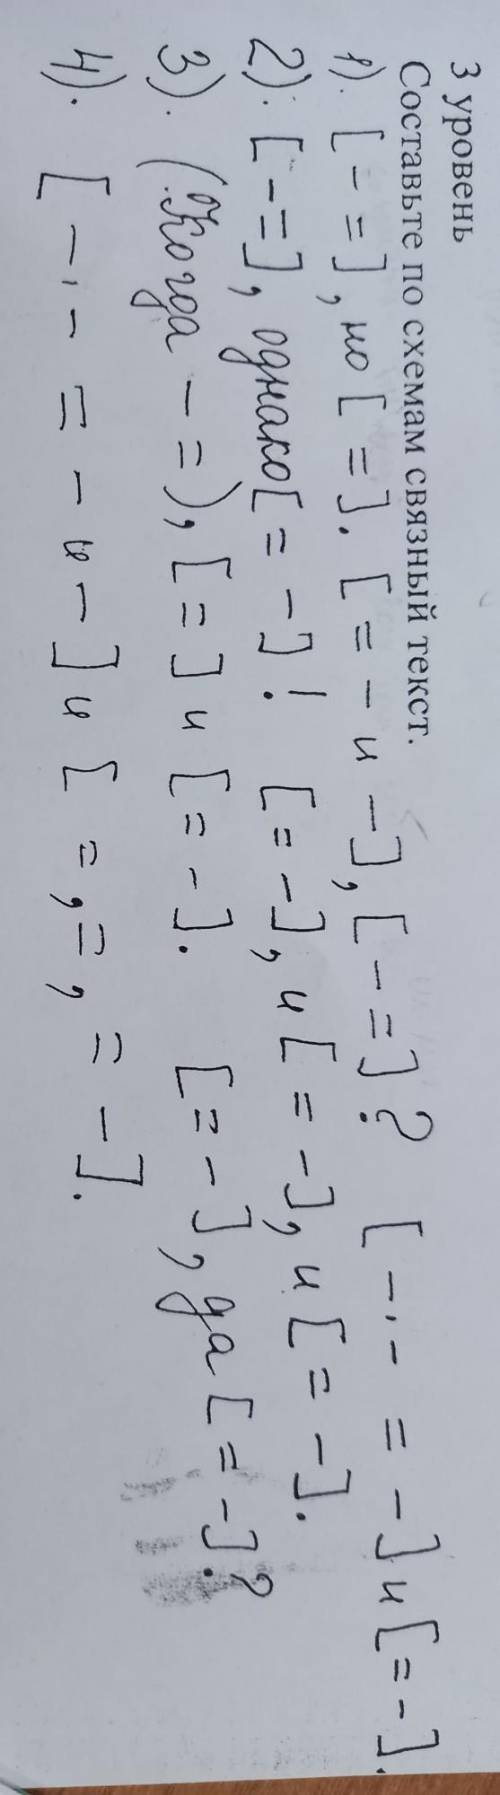 3 уровень
Составьте по схемам связный текст.
1). [ – = ], но [ = ]. [ = – и – ], [ – = ]? [ –, – = – ] и [ = – ].
2). [ – = ], однако [ = – ]! [ = – ], и [ = – ], и [ = – ].
3). (Когда – = ), [ = ] и [ = – ]. [ = – ], да [ = – ]?
4). [ –, – = – и – ] и [ =, =, = – ].